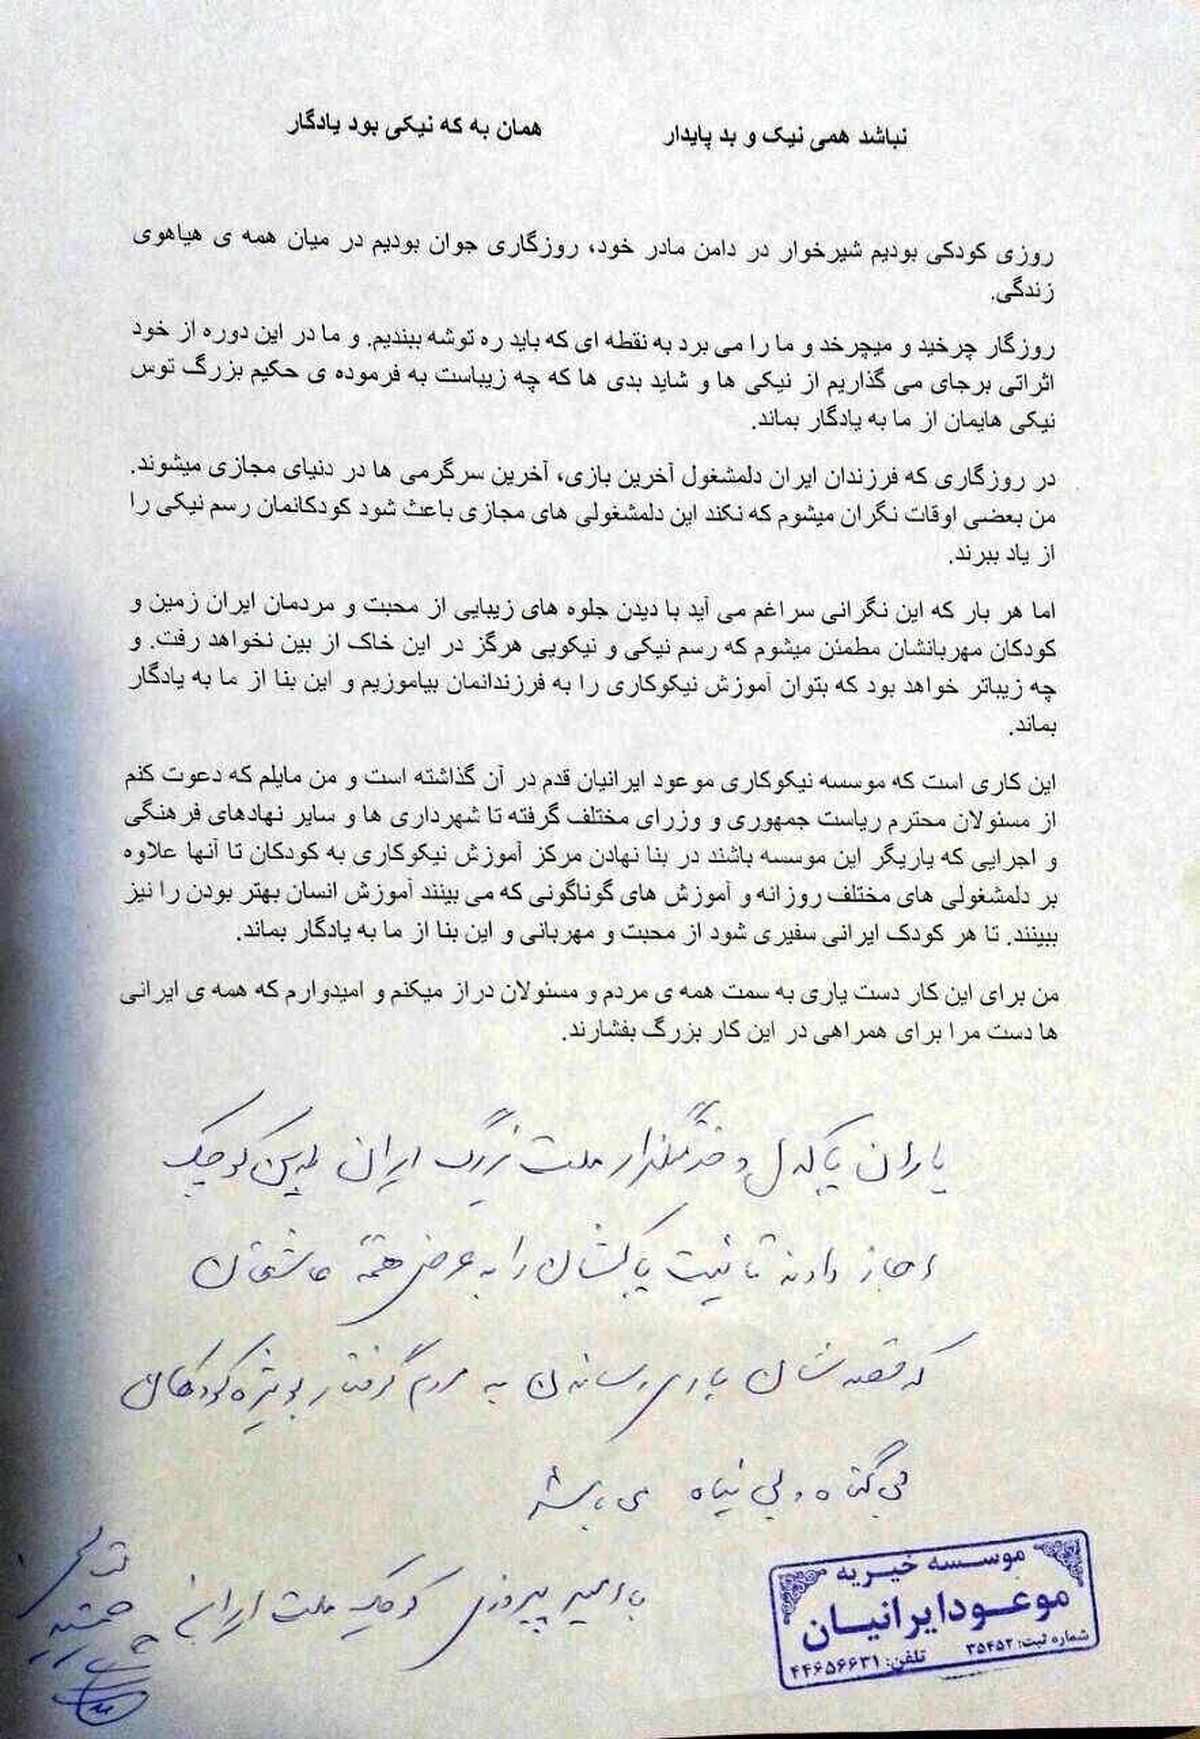 نباشد همی نیک و بد پایدار همان به که نیکی بود یادگار
روزی کودکی بودیم شیرخوار در دامن مادر خود، روزگاری جوان بودیم در میان همه ی هیاهوی
زندگی.
روزگار چرخید و میچرخد و ما را می برد به نقطه ای که باید ره توشه ببندیم. و ما در این دوره از خود
اثراتی برجای می گذاریم از نیکی ها و شاید بدی ها که چه زیباست به فرموده ی حکیم بزرگ توس
نیکی هایمان از ما به یادگار بماند.
در روزگاری که فرزندان ایران دلمشغول آخرین بازی، آخرین سرگرمی ها در دنیای مجازی میشوند.
من بعضی اوقات نگران میشوم که نکند این دلمشغولی های مجازی باعث شود کودکانمان رسم نیکی را
از یاد ببرند.
اما هر بار که این نگرانی سراغم می آید با دیدن جلوه های زیبایی از محبت و مردمان ایران زمین و
کودکان مهربانشان مطمئن میشوم که رسم نیکی و نیکویی هرگز در این خاک از بین نخواهد رفت. و
چه زیباتر خواهد بود که بتوان آموزش نیکوکاری را به فرزندانمان بیاموزیم و این بنا از ما به یادگار
بماند.
این کاری است که موسسه نیکوکاری موعود ایرانیان قدم در آن گذاشته است و من مایلم که دعوت کنم
از مسئولان محترم ریاست جمهوری و وزرای مختلف گرفته تا شهرداری ها و سایر نهادهای فرهنگی
و اجرایی که یاریگر این موسسه باشند در بنا نهادن مرکز آموزش نیکوکاری به کودکان تا آنها علاوه
بر دلمشغولی های مختلف روزانه و آموزش های گوناگونی که می بینند آموزش انسان بهتر بودن را نیز
ببینند. تا هر کودک ایرانی سفیری شود از محبت و مهربانی و این بنا از ما به یادگار بماند.
من برای این کار دست یاری به سمت همه ی مردم و مسئولان دراز میکنم و امیدوارم که همه ی ایرانی
ها دست مرا برای همراهی در این کار بزرگ بفشارند.
یاران پاکدل و خدمتگذار ملت بزرگ ایران کوچک
اجازه دادند تا نیت پاکشان را به عرض همه عاشقان
که قصدشان یاری رساندن به مردم گرفتار بویژه کودکان
بی گناه و بی پناه می باشد
با امید پیروزی کوچک ملت ایران
جمشید
موسسه خیریه
موعود ایرانیان
شماره ثبت: ۳۵۴۵۲ تلفن: ۴۴۶۵۶۶۳۱